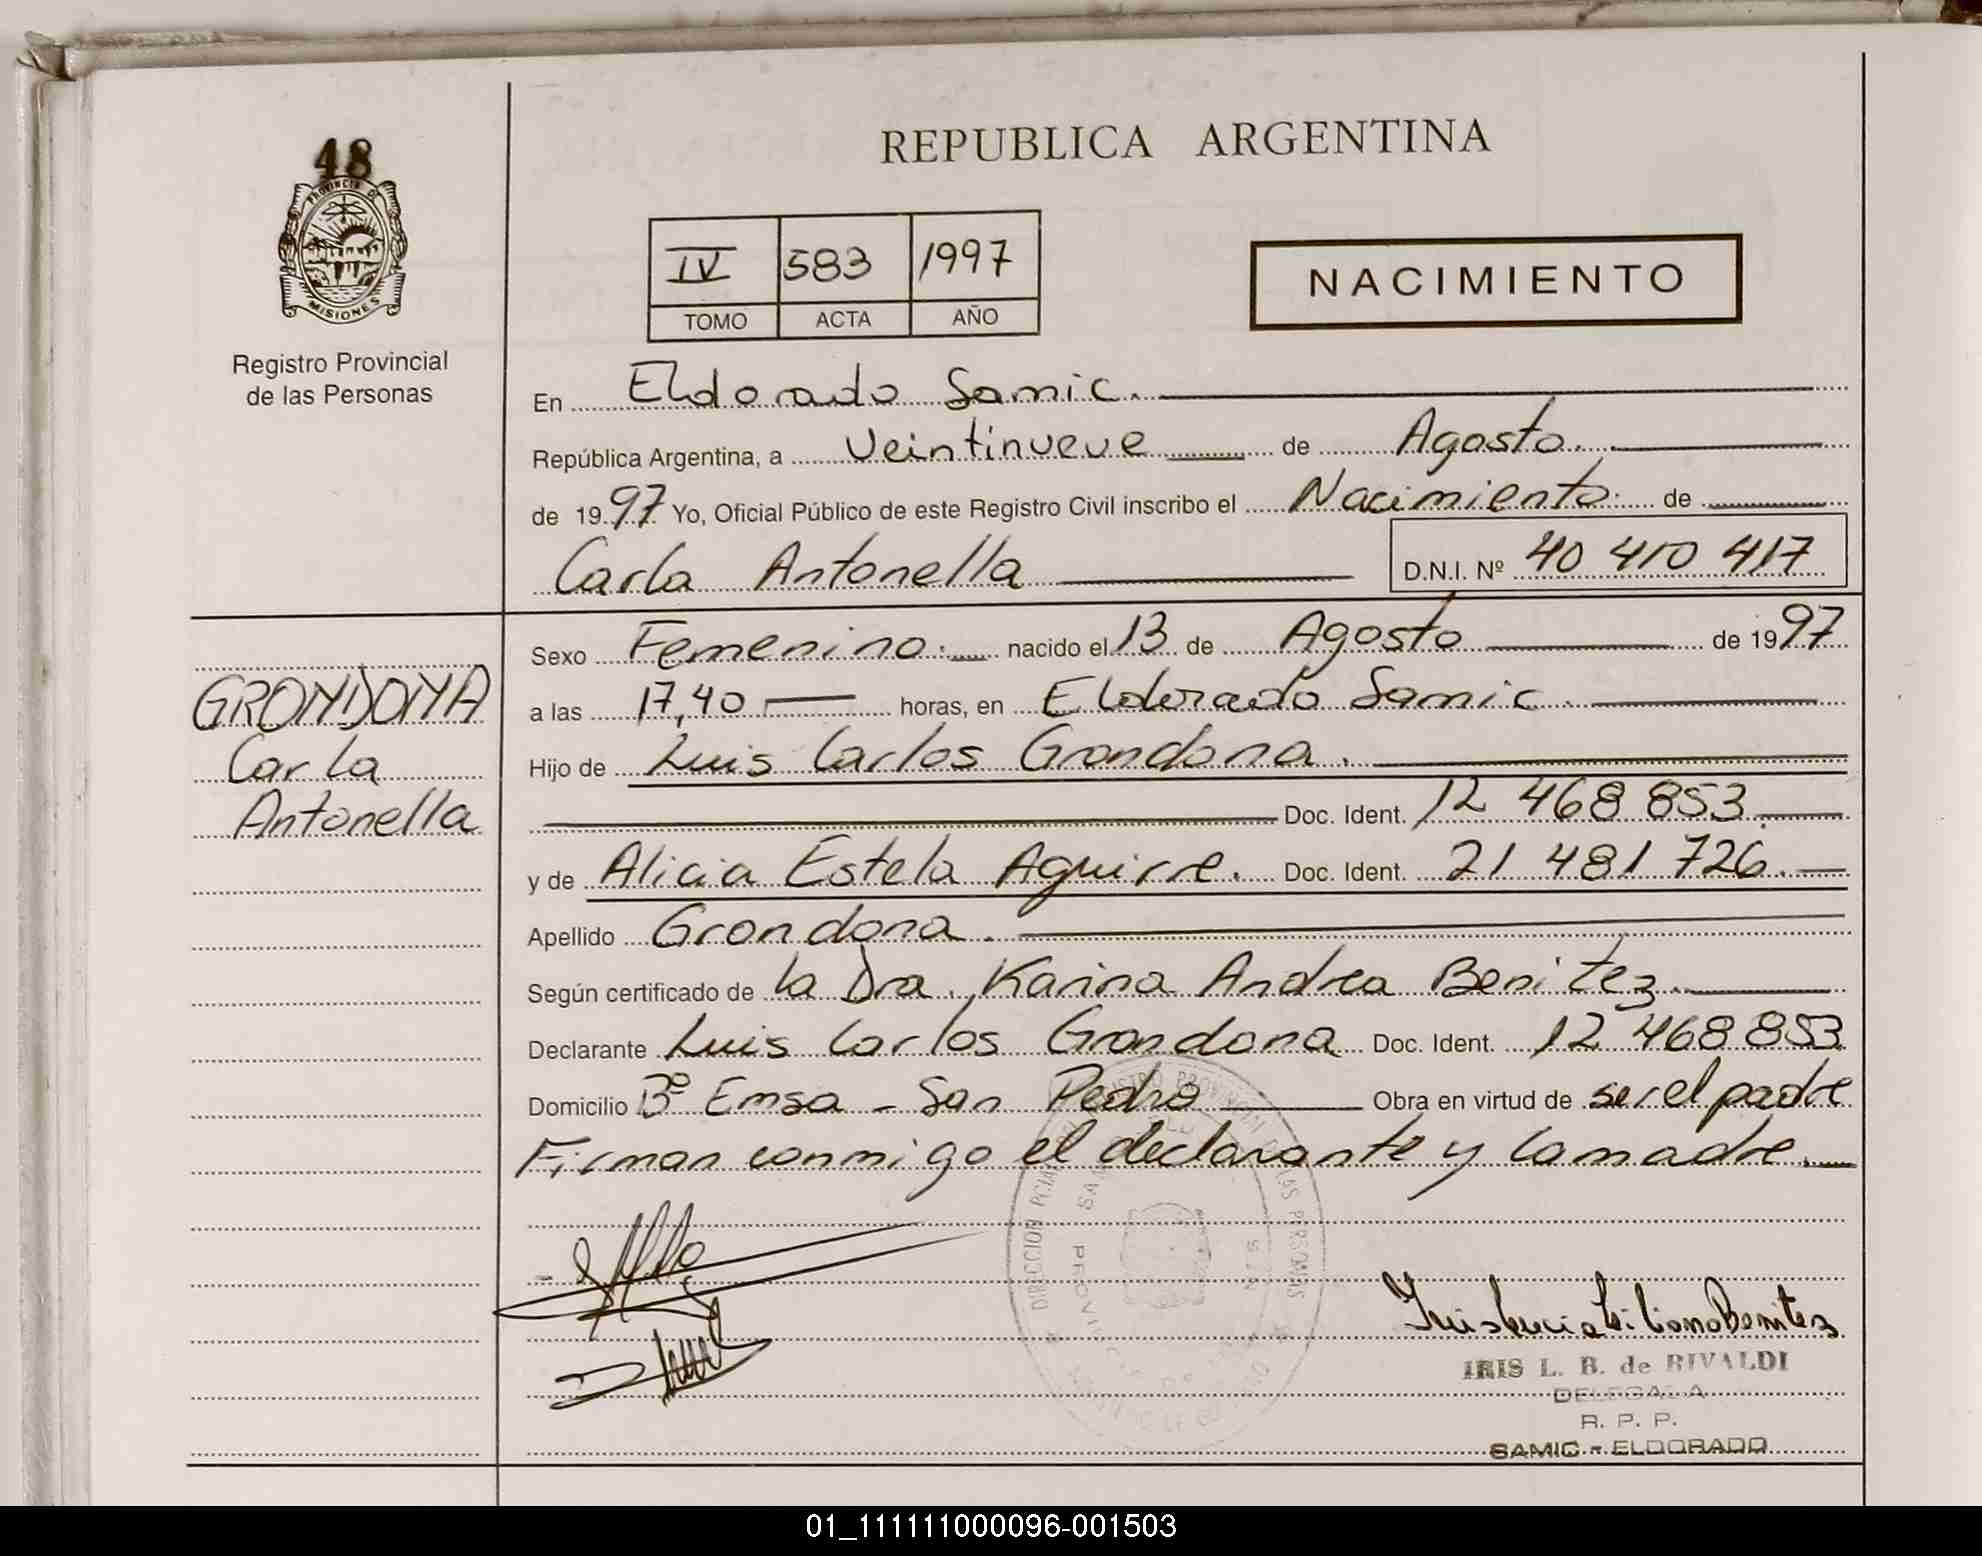 REPUBLICA ARGENTINA
48
PROVINCIA D
MISIONES
Registro Provincial
de las Personas
IV 583 1997
TOMO ACTA AÑO
NACIMIENTO
En Eldorado Samic.
República Argentina, a Veintinueve de Agosto.
de 1997 Yo, Oficial Público de este Registro Civil inscribo el Nacimiento. de
Carla Antonella D.N.I. Nº 40 410 417
Sexo Femenino. nacido el 13 de Agosto de 1997
GRONDONA
Carla
Antonella
a las 17,40 horas, en Eldorado Samic.
Hijo de Luis Carlos Grondona.
Doc. Ident. 12 468 853.
y de Alicia Estela Aguirre. Doc. Ident. 21 481 726.
Apellido Grondona.
Según certificado de la Dra. Karina Andrea Benitez.
Declarante Luis Carlos Grondona Doc. Ident. 12 468 853.
Domicilio Bº Emsa - San Pedro Obra en virtud de ser el padre
Firman conmigo el declarante y la madre.
IRIS L. B. de RIVALDI
DELEGADA
R. P. P.
SAMIC - ELDORADO
01_111111000096-001503